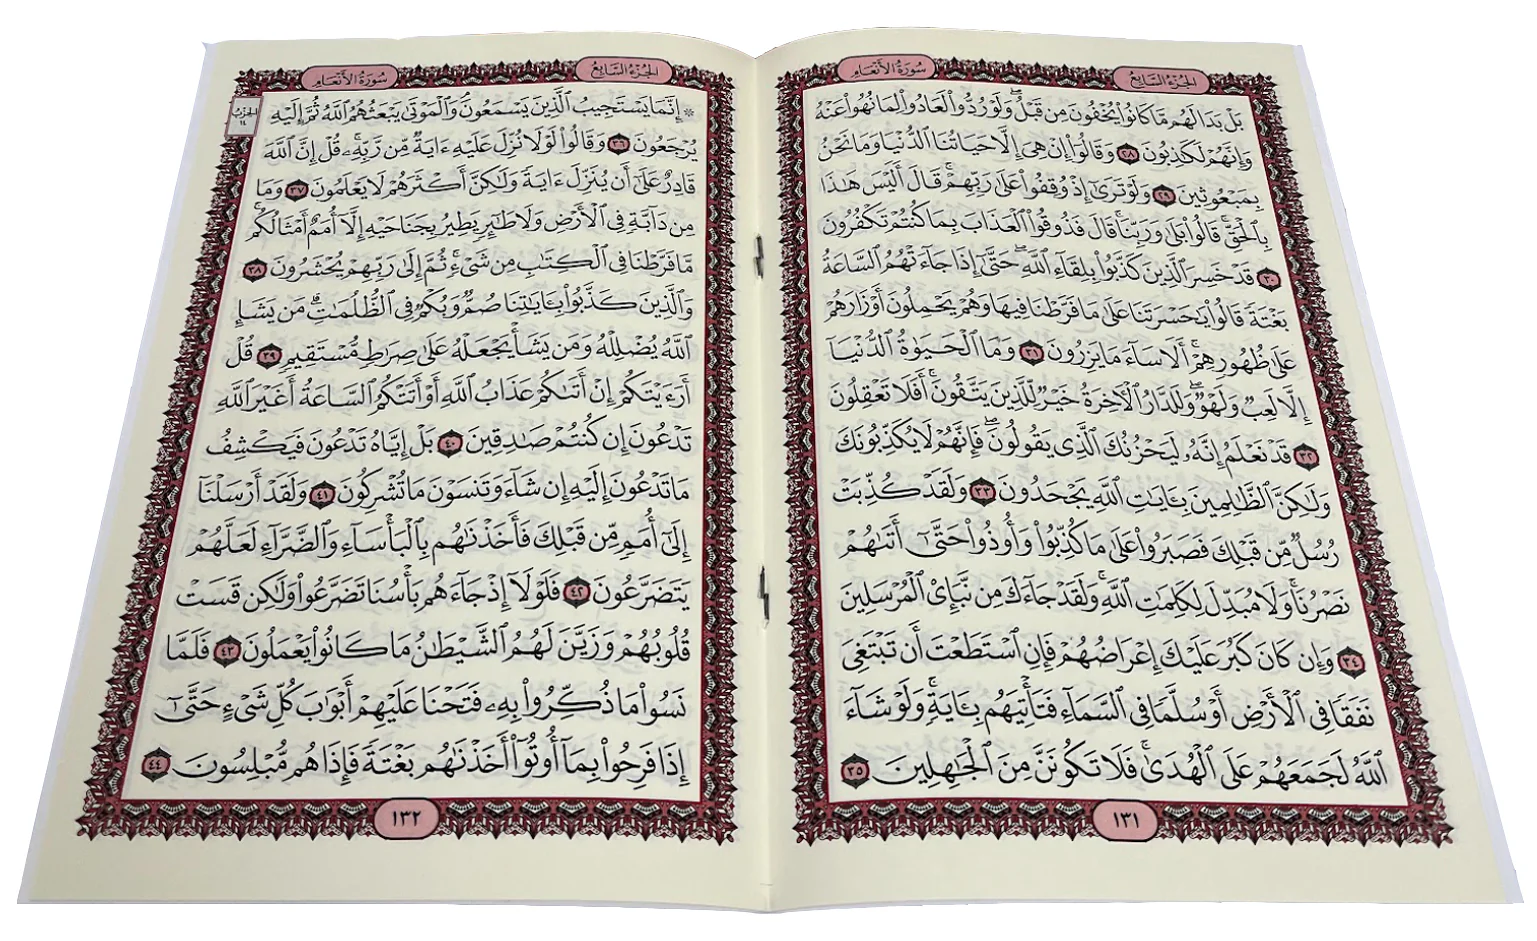 سُورَةُ الأَنْعَامِ
الجُزْءُ السَّابِعُ
بَلْ بَدَا لَهُم مَّا كَانُوا۟ يُخْفُونَ مِن قَبْلُ ۖ وَلَوْ رُدُّوا۟ لَعَادُوا۟ لِمَا نُهُوا۟ عَنْهُ
وَإِنَّهُمْ لَكَٰذِبُونَ ٢٨ وَقَالُوٓا۟ إِنْ هِىَ إِلَّا حَيَاتُنَا ٱلدُّنْيَا وَمَا نَحْنُ
بِمَبْعُوثِينَ ٢٩ وَلَوْ تَرَىٰٓ إِذْ وُقِفُوا۟ عَلَىٰ رَبِّهِمْ ۚ قَالَ أَلَيْسَ هَٰذَا
بِٱلْحَقِّ ۚ قَالُوا۟ بَلَىٰ وَرَبِّنَا ۚ قَالَ فَذُوقُوا۟ ٱلْعَذَابَ بِمَا كُنتُمْ تَكْفُرُونَ
٣٠ قَدْ خَسِرَ ٱلَّذِينَ كَذَّبُوا۟ بِلِقَآءِ ٱللَّهِ ۖ حَتَّىٰٓ إِذَا جَآءَتْهُمُ ٱلسَّاعَةُ
بَغْتَةً قَالُوا۟ يَٰحَسْرَتَنَا عَلَىٰ مَا فَرَّطْنَا فِيهَا وَهُمْ يَحْمِلُونَ أَوْزَارَهُمْ
عَلَىٰ ظُهُورِهِمْ ۚ أَلَا سَآءَ مَا يَزِرُونَ ٣١ وَمَا ٱلْحَيَوٰةُ ٱلدُّنْيَآ
إِلَّا لَعِبٌ وَلَهْوٌ ۖ وَلَلدَّارُ ٱلْءَاخِرَةُ خَيْرٌ لِّلَّذِينَ يَتَّقُونَ ۗ أَفَلَا تَعْقِلُونَ
٣٢ قَدْ نَعْلَمُ إِنَّهُۥ لَيَحْزُنُكَ ٱلَّذِى يَقُولُونَ ۖ فَإِنَّهُمْ لَا يُكَذِّبُونَكَ
وَلَٰكِنَّ ٱلظَّٰلِمِينَ بِـَٔايَٰتِ ٱللَّهِ يَجْحَدُونَ ٣٣ وَلَقَدْ كُذِّبَتْ
رُسُلٌ مِّن قَبْلِكَ فَصَبَرُوا۟ عَلَىٰ مَا كُذِّبُوا۟ وَأُوذُوا۟ حَتَّىٰٓ أَتَىٰهُمْ
نَصْرُنَا ۚ وَلَا مُبَدِّلَ لِكَلِمَٰتِ ٱللَّهِ ۚ وَلَقَدْ جَآءَكَ مِن نَّبَإِى۟ ٱلْمُرْسَلِينَ
٣٤ وَإِن كَانَ كَبُرَ عَلَيْكَ إِعْرَاضُهُمْ فَإِنِ ٱسْتَطَعْتَ أَن تَبْتَغِىَ
نَفَقًا فِى ٱلْأَرْضِ أَوْ سُلَّمًا فِى ٱلسَّمَآءِ فَتَأْتِيَهُم بِـَٔايَةٍ ۚ وَلَوْ شَآءَ
ٱللَّهُ لَجَمَعَهُمْ عَلَى ٱلْهُدَىٰ ۚ فَلَا تَكُونَنَّ مِنَ ٱلْجَٰهِلِينَ ٣٥
١٣١
الجُزْءُ السَّابِعُ
سُورَةُ الأَنْعَامِ
الحزب
١٤
۞ إِنَّمَا يَسْتَجِيبُ ٱلَّذِينَ يَسْمَعُونَ ۘ وَٱلْمَوْتَىٰ يَبْعَثُهُمُ ٱللَّهُ ثُمَّ إِلَيْهِ
يُرْجَعُونَ ٣٦ وَقَالُوا۟ لَوْلَا نُزِّلَ عَلَيْهِ ءَايَةٌ مِّن رَّبِّهِۦ ۚ قُلْ إِنَّ ٱللَّهَ
قَادِرٌ عَلَىٰٓ أَن يُنَزِّلَ ءَايَةً وَلَٰكِنَّ أَكْثَرَهُمْ لَا يَعْلَمُونَ ٣٧ وَمَا
مِن دَآبَّةٍ فِى ٱلْأَرْضِ وَلَا طَٰٓئِرٍ يَطِيرُ بِجَنَاحَيْهِ إِلَّآ أُمَمٌ أَمْثَالُكُم ۚ
مَّا فَرَّطْنَا فِى ٱلْكِتَٰبِ مِن شَىْءٍ ۚ ثُمَّ إِلَىٰ رَبِّهِمْ يُحْشَرُونَ ٣٨
وَٱلَّذِينَ كَذَّبُوا۟ بِـَٔايَٰتِنَا صُمٌّ وَبُكْمٌ فِى ٱلظُّلُمَٰتِ ۗ مَن يَشَإِ
ٱللَّهُ يُضْلِلْهُ وَمَن يَشَأْ يَجْعَلْهُ عَلَىٰ صِرَٰطٍ مُّسْتَقِيمٍ ٣٩ قُلْ
أَرَءَيْتَكُمْ إِنْ أَتَىٰكُمْ عَذَابُ ٱللَّهِ أَوْ أَتَتْكُمُ ٱلسَّاعَةُ أَغَيْرَ ٱللَّهِ
تَدْعُونَ إِن كُنتُمْ صَٰدِقِينَ ٤٠ بَلْ إِيَّاهُ تَدْعُونَ فَيَكْشِفُ
مَا تَدْعُونَ إِلَيْهِ إِن شَآءَ وَتَنسَوْنَ مَا تُشْرِكُونَ ٤١ وَلَقَدْ أَرْسَلْنَآ
إِلَىٰٓ أُمَمٍ مِّن قَبْلِكَ فَأَخَذْنَٰهُم بِٱلْبَأْسَآءِ وَٱلضَّرَّآءِ لَعَلَّهُمْ
يَتَضَرَّعُونَ ٤٢ فَلَوْلَآ إِذْ جَآءَهُم بَأْسُنَا تَضَرَّعُوا۟ وَلَٰكِن قَسَتْ
قُلُوبُهُمْ وَزَيَّنَ لَهُمُ ٱلشَّيْطَٰنُ مَا كَانُوا۟ يَعْمَلُونَ ٤٣ فَلَمَّا
نَسُوا۟ مَا ذُكِّرُوا۟ بِهِۦ فَتَحْنَا عَلَيْهِمْ أَبْوَٰبَ كُلِّ شَىْءٍ حَتَّىٰٓ
إِذَا فَرِحُوا۟ بِمَآ أُوتُوٓا۟ أَخَذْنَٰهُم بَغْتَةً فَإِذَا هُم مُّبْلِسُونَ ٤٤
١٣٢